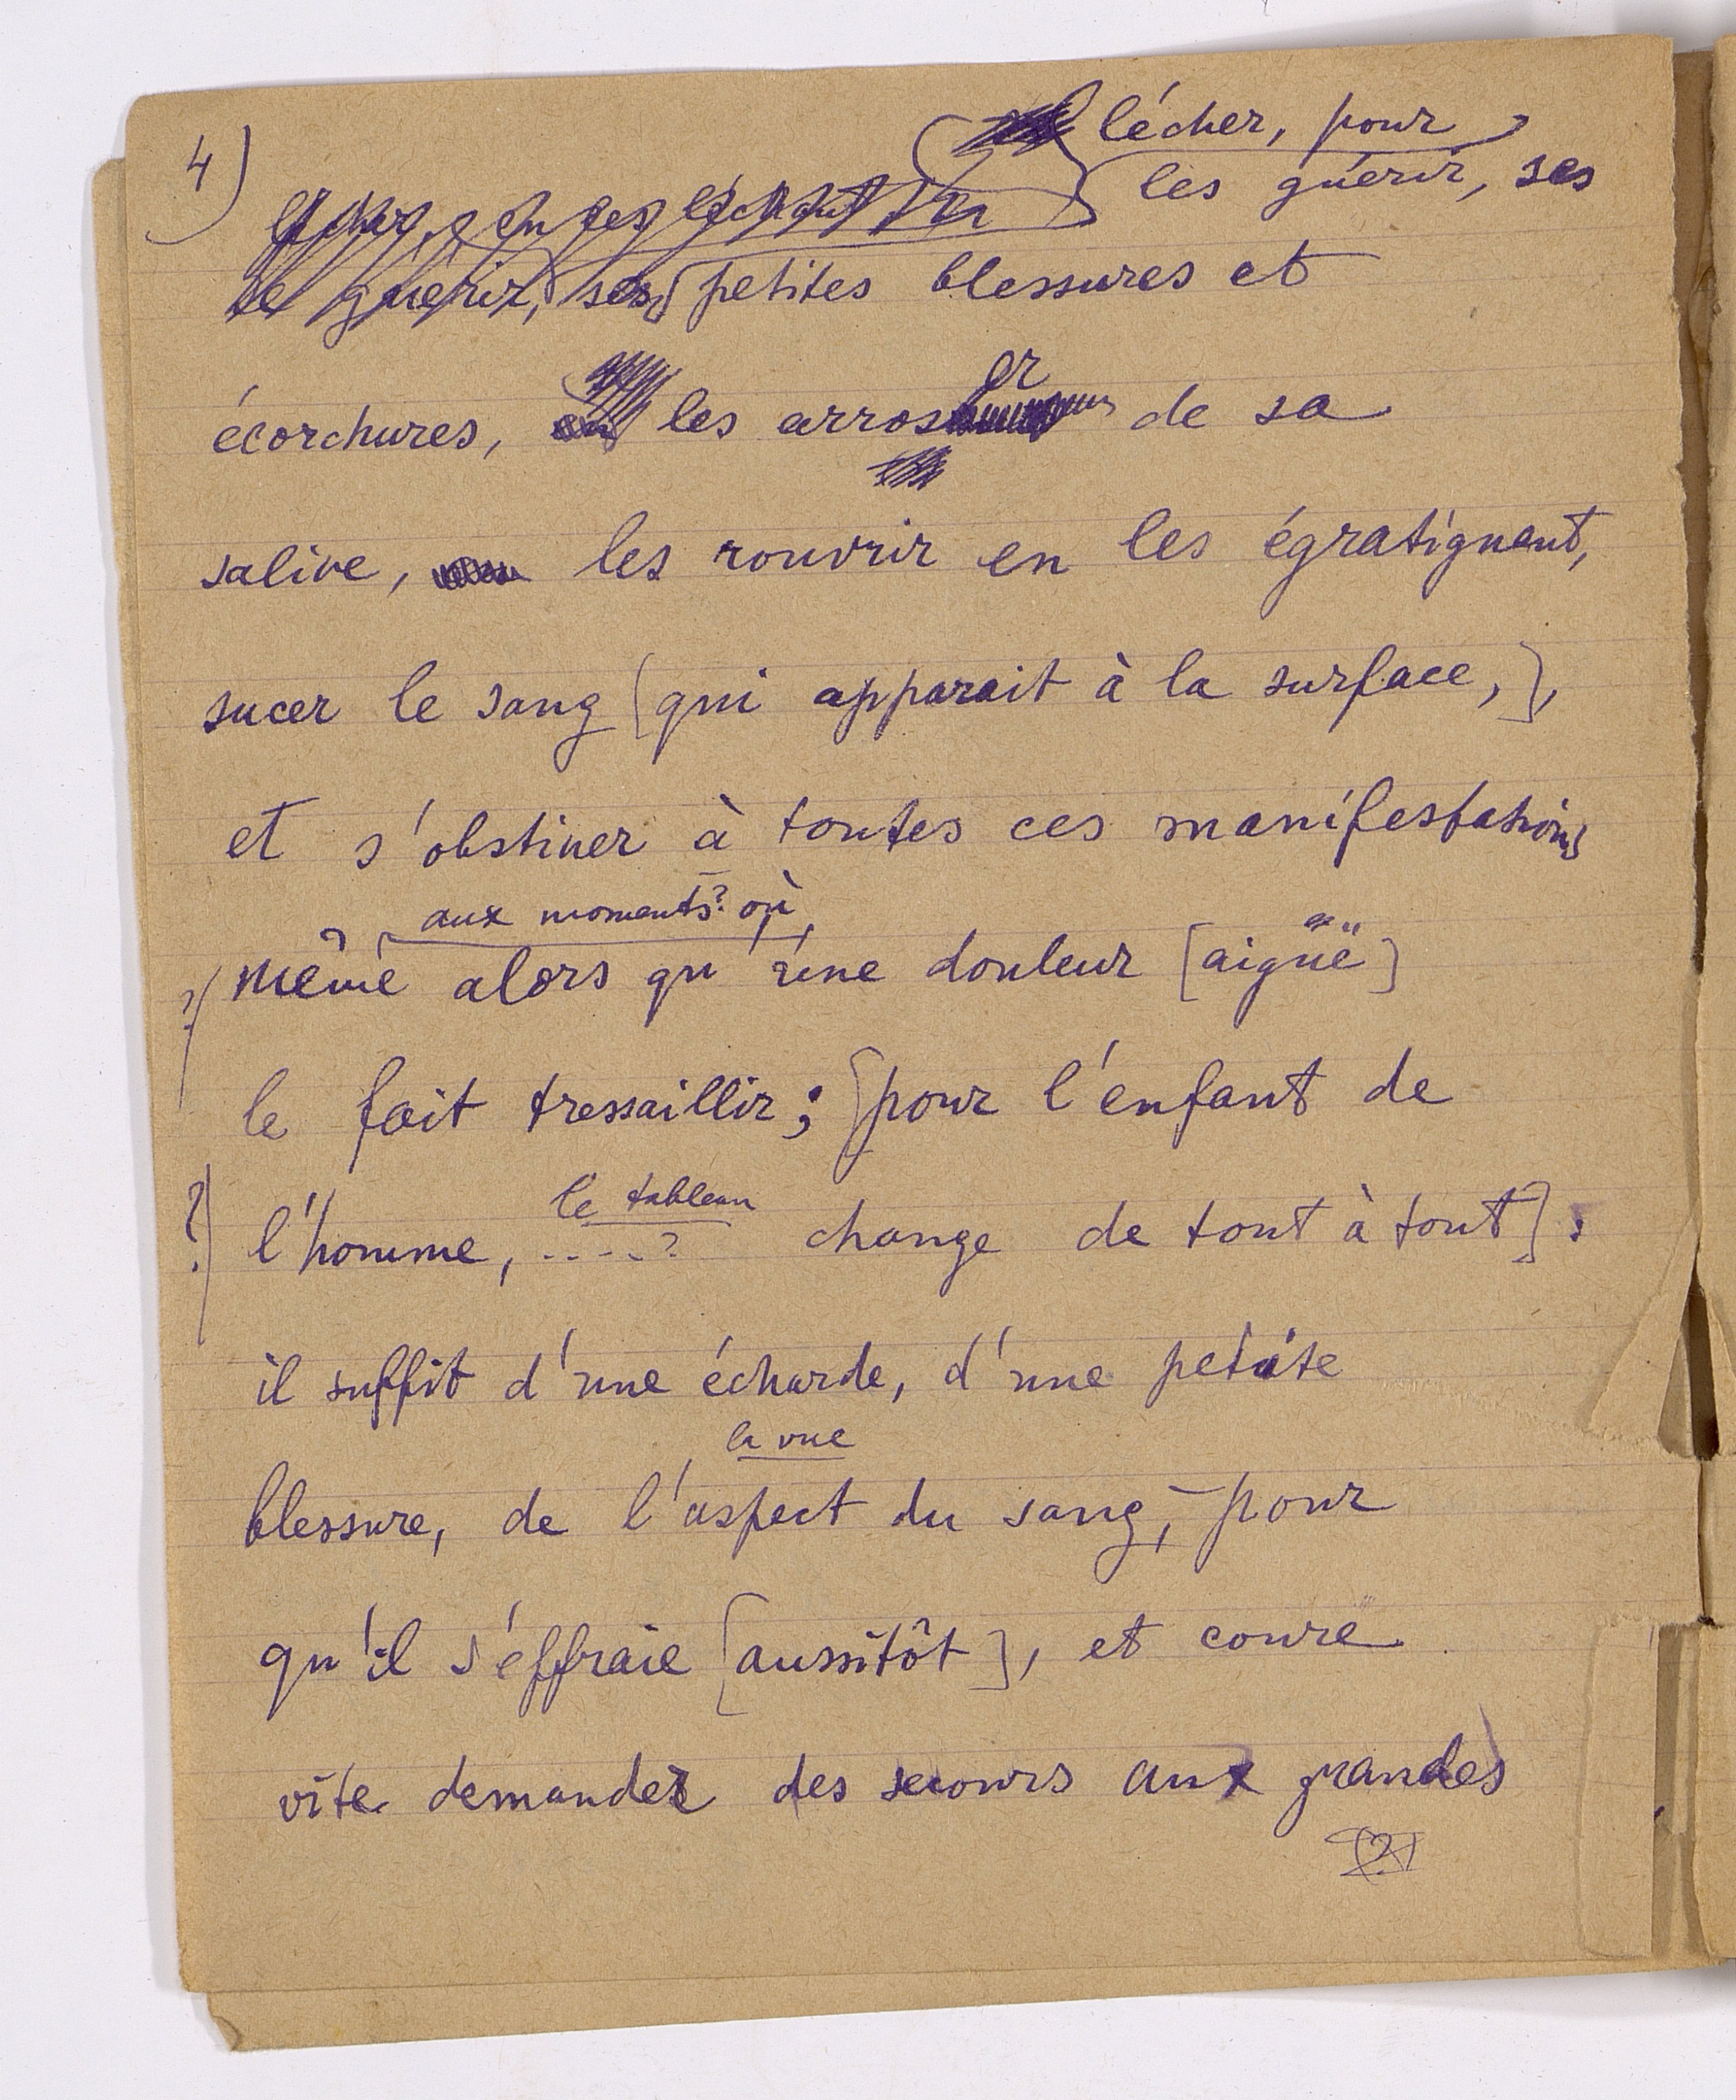 4)
lécher, pour
les guérir, ses
lécher, en les léchant
le guérir, ses petites blessures et
er
écorchures, les arros de sa
salive, les rouvrir en les égratignant,
sucer le sang [qui apparait à la surface,],
et s'obstiner à toutes ces manifestations
aux moments? où
?/ même alors qu'une douleur [aiguë]
le fait tressaillir; [pour l'enfant de
le tableau
?) l'homme, ....? change de tout à tout]:
il suffit d'une écharde, d'une petite
la vue
blessure, de l'aspect du sang, – pour
qu'il s'éffraie [aussitôt], et coure
vite demander des secours aux grandes
(?)